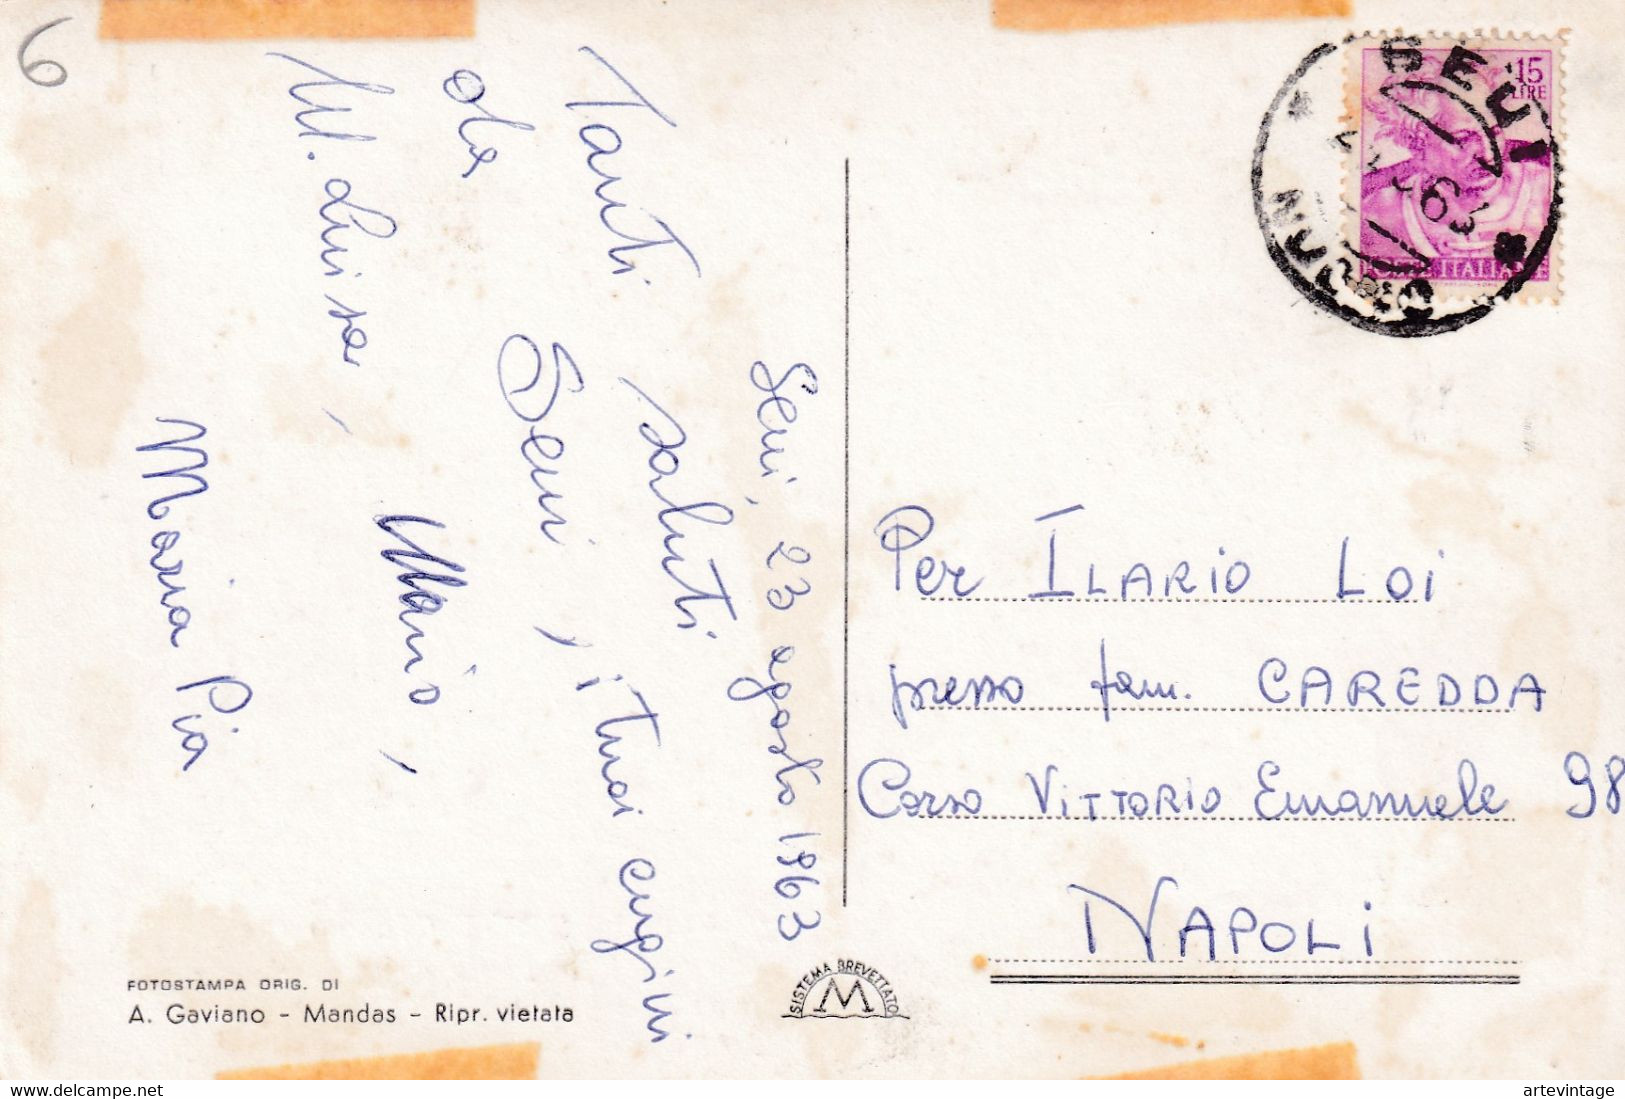 6
Seui, 23 agosto 1963
Tanti saluti
da Seui, i tuoi cugini
M. Luisa, Mario,
Maria Pia
15
LIRE
POSTE ITALIANE
SEUI
NUORO
Per ILARIO LOI
presso fam. CAREDDA
Corso VITTORIO Emanuele 98
NAPOLI
FOTOSTAMPA ORIG. DI
A. Gaviano - Mandas - Ripr. vietata
SISTEMA BREVETTATO
M
delcampe.net
artevintage